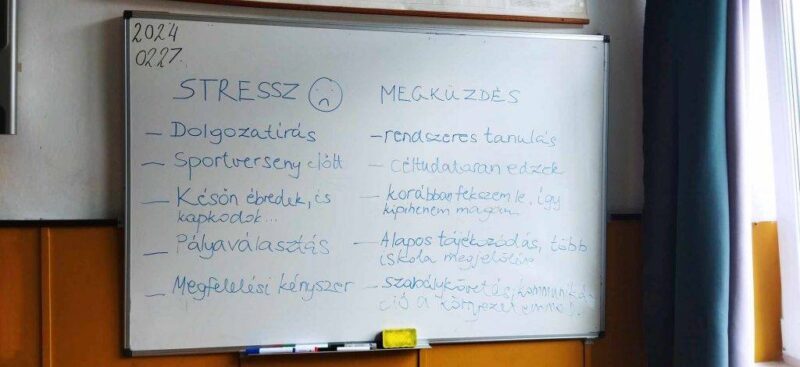 2024
02.27.
STRESSZ
— Dolgozatírás
— Sportverseny előtt
— Későn ébredek, és
kapkodok...
— Pályaválasztás
— Megfelelési kényszer
MEGKÜZDÉS
- rendszeres tanulás
- Céltudatosan edzek
- korábban fekszem le, így
kipihenem magam
- Alapos tájékozódás, több
iskola megjelölése
- szabálykövetés, kommuniká-
ció a környezetemmel!